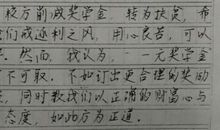 校方削减奖学金，转为扶贫，希
们戒逐利之风，用心良苦，可以
。然而，我认为，一元奖学金
不可取。不如订出更合理的奖励
，同时教我们以正确的财富心与
态度，如此方为正道。